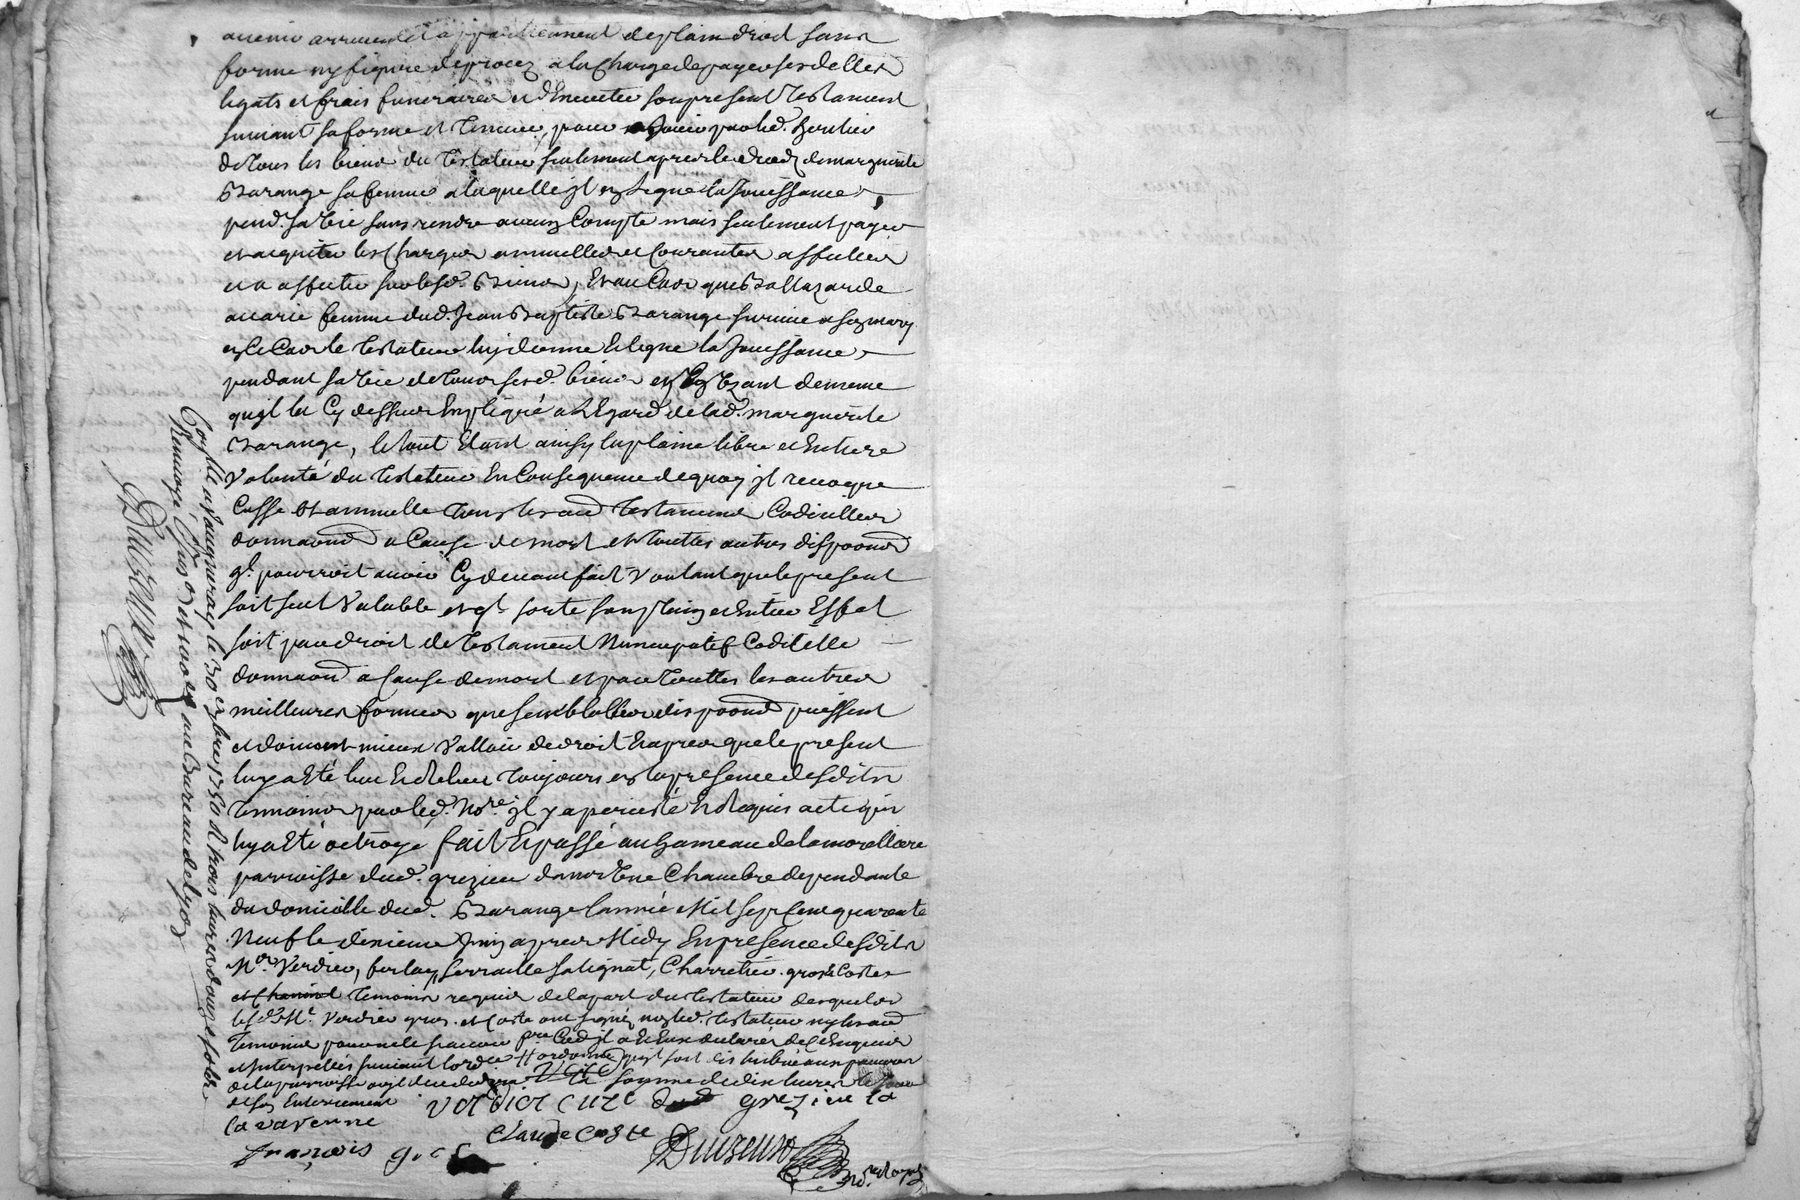 avenir arrivent et appartiennent de plain droit sans
forme ny figure de procez a la charge de payer ses dettes
legats et frais funeraires et d'executer son present testament
suivant sa forme et teneur, pour jouir par led. heritier
de tous les biens du testateur seulement apres le deces de marguerite
Barange sa femme a laquelle jl en legue la jouissance
pend. sa vie sans rendre aucun compte mais seulement payer
et acquiter les charges annuelles et courantes affectées
et a affecter sur lesd. biens, Et au cas que Baltazarde
femme dud. Jean Baptiste Barange survive a son mary
en ce cas le testateur luy donne et legue la jouissance
pendant sa vie de tous sesd. biens en en usant de meme
qu'jl la cy dessus Expliqué a l'Egard de lad. marguerite
Barange, le tout Etant ainsy la plaine libre et Entiere
volonté du testateur En consequence de quoy jl revoque
casse et annulle tous les aud testamens codicilles
donnaond a cause de mort et touttes autres dispoond
ql. pourroit avoir cy devant fait voulant que le present
soit seul valable et ql. sorte son plain et Entier Effet
soit par droit de testament Nuncupatif codicille
donnaond a cause de mort et par touttes les autres
meilleures formes que semblables dispoond puissent
et doivent mieux valloir de droit Et apres que le present
luy a Eté lue Et releue toujours en la presence desdits
temoins par led. Nore. jl y a percisté Et requis acte qui
luy a Eté octroyé fait Et passé au hameau de la morelliere
parroisse dud. grezieu dans une chambre dependante
du domicille dud. Barange l'année Mil sept cent quarante
Neuf le dixieme Juin apres Midy En presence desdits
Mre. Verdier, ferlay, serraille salignat, Charretier. gros Costes
et temoins requis de la part du testateur desquels
lesd. Mre. Verdier gros. et Coste ont signéz non led. testateur ny les aud
temoins pour ne le scavoir faire Ecrire jl a Et Eux declarés de ce Enquis
et Interpellés suivant l'ord.e # ordonne qu'jl soit distribué aux pauvres
de la parroisse la somme de dix livres le jour
de son Enterrement verdier curé dud grezieu la
la varenne
Claude Coste
françois gros
Duizeux
Conlle a vaugneray le 30e xbre 1750 R trois livres douze sols
Renvoye au bureau de Lyon
Duizeux